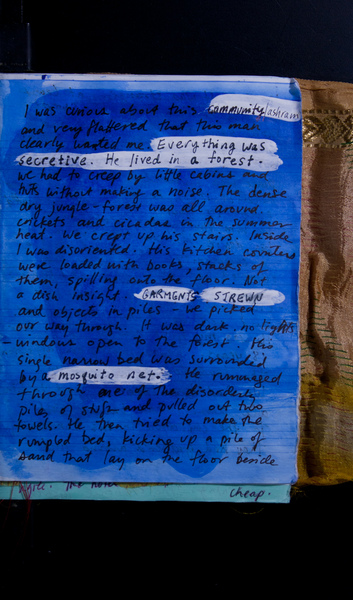 I was curious about this community/ashram
and very flattered that this man
clearly wanted me. Everything was
secretive. He lived in a forest.
we had to creep by little cabins and
huts without making a noise. The dense
dry jungle-forest was all around
crickets and cicadas in the summer
heat. We crept up his stairs. Inside
I was disoriented. His kitchen counters
were loaded with books, stacks of
them, spilling onto the floor. Not
a dish insight. GARMENTS STREWN
and objects in piles we picked
our way through. It was dark, no lights
- windows open to the forest His
single narrow bed was surrounded
by a mosquito net. He rummaged
through one of the disorderly
piles of stuff and pulled out two
towels. He then tried to make the
rumpled bed, kicking up a pile of
sand that lay on the floor beside
The hotel
cheap.